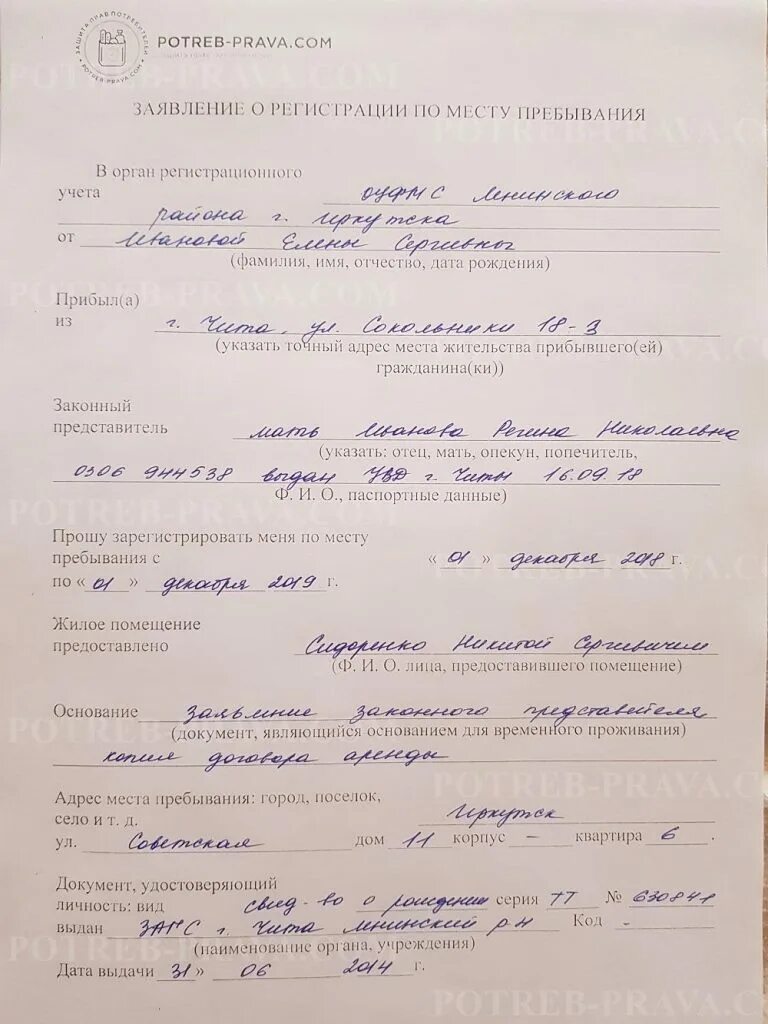 ЗАЩИТА ПРАВ ПОТРЕБИТЕЛЕЙ
POTREB-PRAVA.COM
POTREB-PRAVA.COM
ЗАЯВЛЕНИЕ О РЕГИСТРАЦИИ ПО МЕСТУ ПРЕБЫВАНИЯ
В орган регистрационного
учета ОУФМС Ленинского
района г. Иркутска
от Ивановой Елены Сергеевны
(фамилия, имя, отчество, дата рождения)
Прибыл(а)
из г. Чита, ул. Сокольники 18-3
(указать точный адрес места жительства прибывшего(ей)
гражданина(ки))
Законный
представитель мать Иванова Регина Николаевна
(указать: отец, мать, опекун, попечитель,
0306 944538 выдан УВД г. Читы 16.09.18
Ф. И. О., паспортные данные)
Прошу зарегистрировать меня по месту
пребывания с « 01 » декабря 2018 г.
по « 01 » декабря 2019 г.
Жилое помещение
предоставлено Сидоренко Никитой Сергеевичем
(Ф. И. О. лица, предоставившего помещение)
Основание Заявление законного представителя
(документ, являющийся основанием для временного проживания)
копия договора аренды
Адрес места пребывания: город, поселок,
село и т. д. Иркутск
ул. Советская дом 11 корпус – квартира 6 .
Документ, удостоверяющий
личность: вид свид-во о рождении серия ТТ № 630841
выдан ЗАГС г. Чита Ленинский р-н Код -
(наименование органа, учреждения)
Дата выдачи 31 » 06 2014 г.